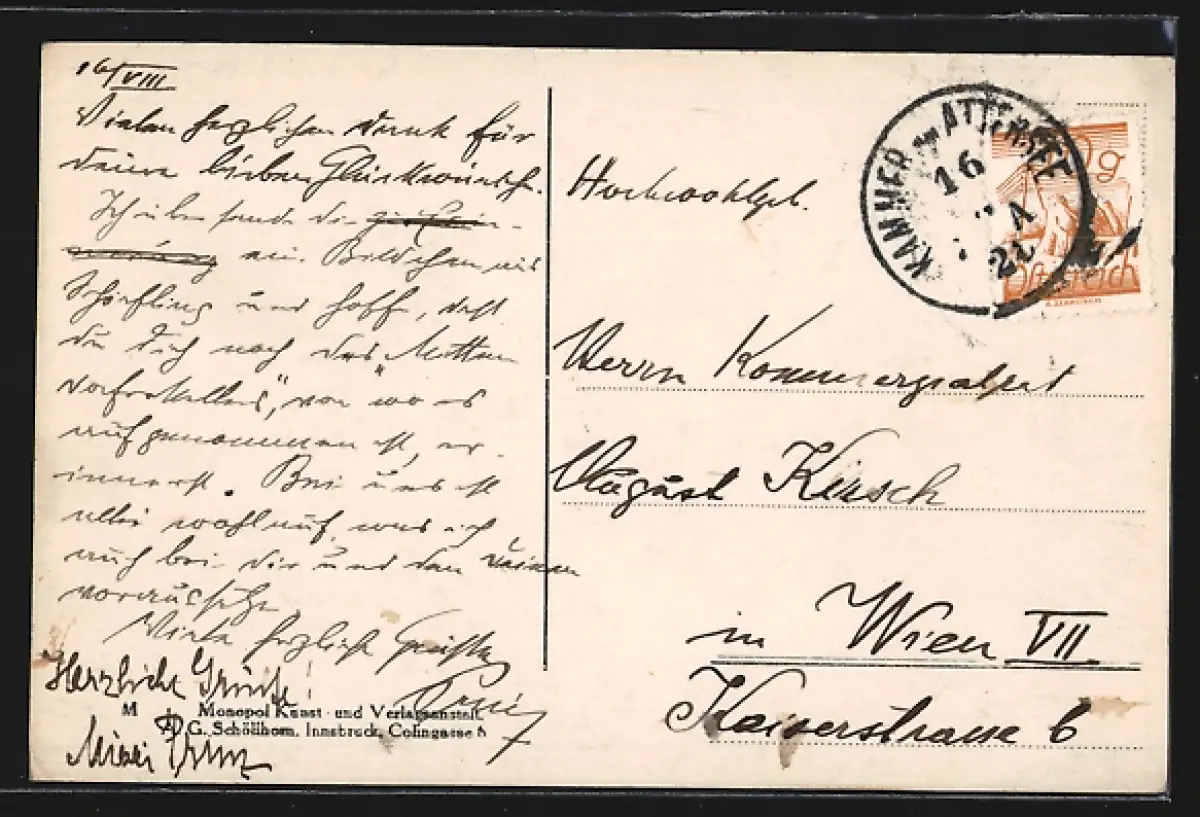 16/VIII
Vielen herzlichen Dank für
deine lieben Glückwünsche.
Ich übersende dir
ein Bildchen von
Schörfling und hoffe, daß
du dich noch des „Mitten
dorferkellers", von wo es
aufgenommen ist, er-
innerst. Bei uns ist
alles wohlauf, was ich
auch bei dir und den deinen
voraussetze.
Viele herzliche Grüße
Herzliche Grüße!
Mizzi
M
Monopol Kunst- und Verlagsanstalt,
A. G. Schöllhorn, Innsbruck, Colingasse
Hochwohlgeb.
Herrn Kommerzialrat
August Kirsch
in Wien VII
Kaiserstrasse 6
KAMMER ATTERSEE
16
g
Österreich